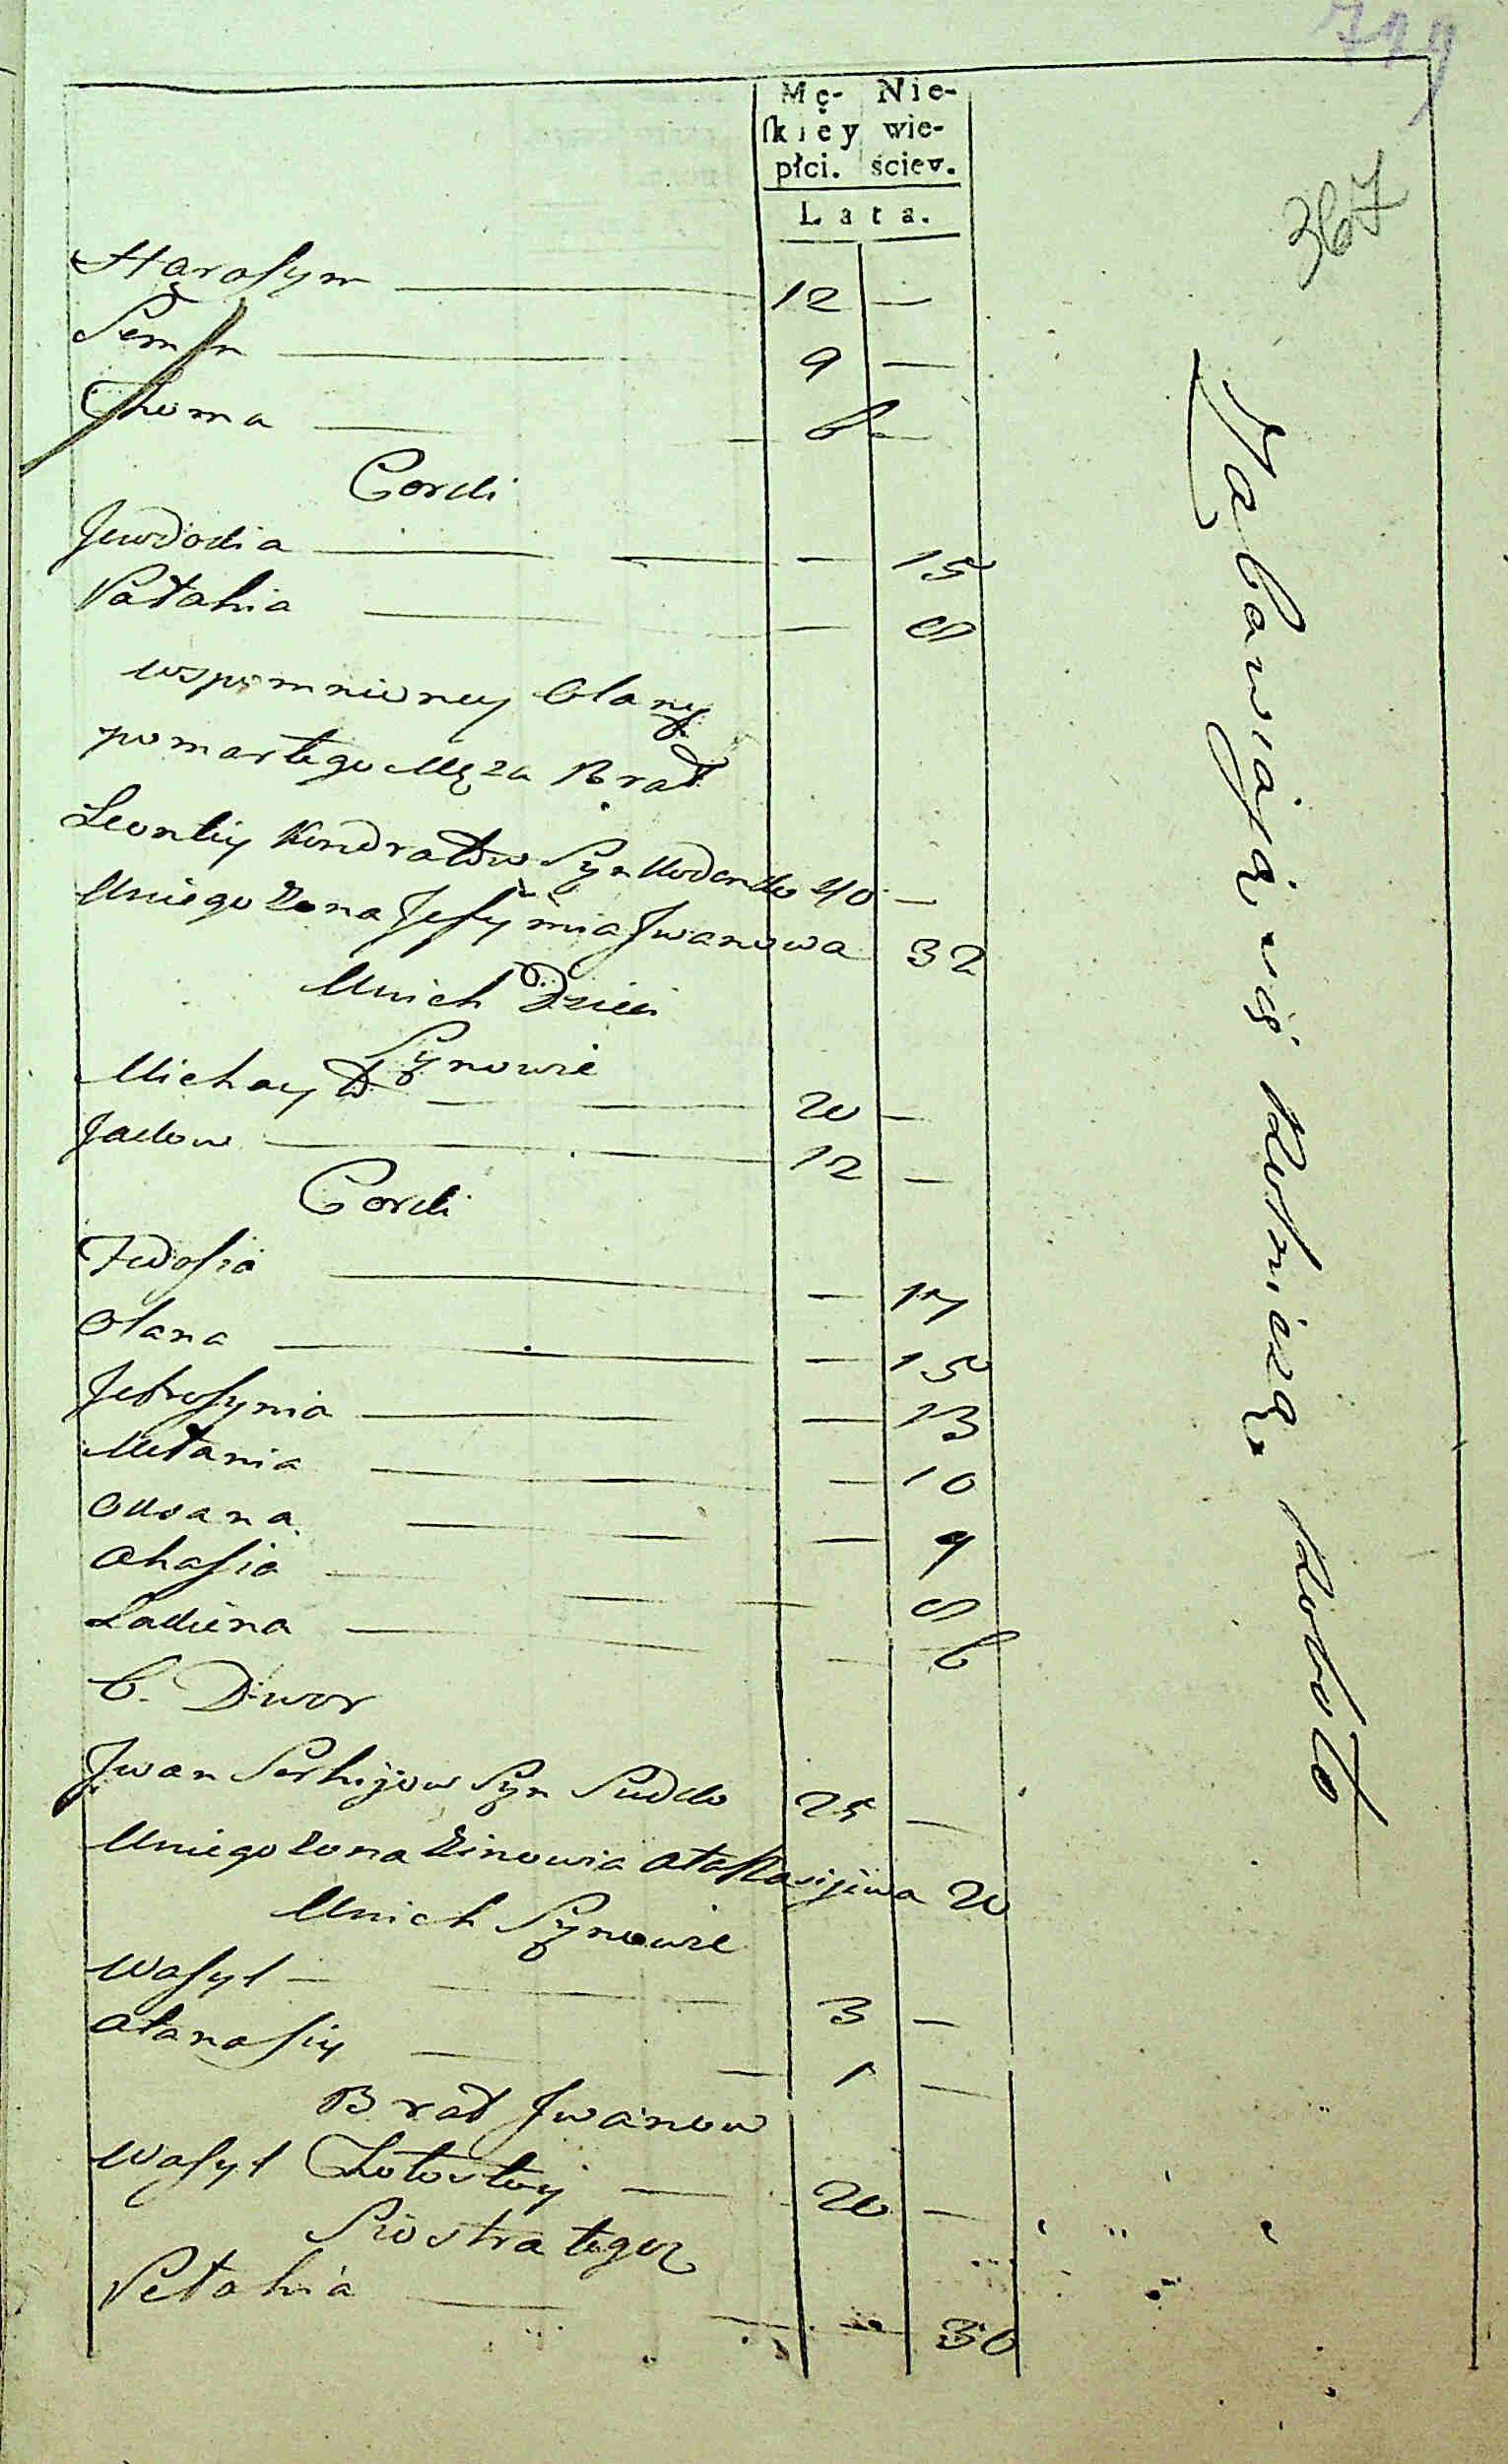 Mę- Nie-
ſkiey wie-
płci. ściey.
Lata.
367
Harasym 12 —
Semen 9 —
Choma 6 —
Corki
Jewdokia — 15
Pałahia — 8
wspomnioney Olany
pomarłego Męża Brat
Leontiy Kondratow Syn Kodenko 40 —
Uniego Zona Jefymia Jwanowa 32
Unich Dzieci
Synowie
Michayło 20 —
Jakow 12 —
Corki
Fedosia — 17
Olana — 15
Jefrosynia — 13
Mełania — 10
Oksana — 9
Ahafia — 8
Jadwina — 6
6. Dwor
Jwan Serhijow Syn Sudko 25 —
Uniego Zona Zinowia Atanasijewa 20
Unich Synowie
Wasyl — 3 —
Atanasiy 1 —
Brat Jwanow
Wasyl 20 —
Siostra tegoz
Pełahia — 30
Zabawiaią się Rolniczą Robotą